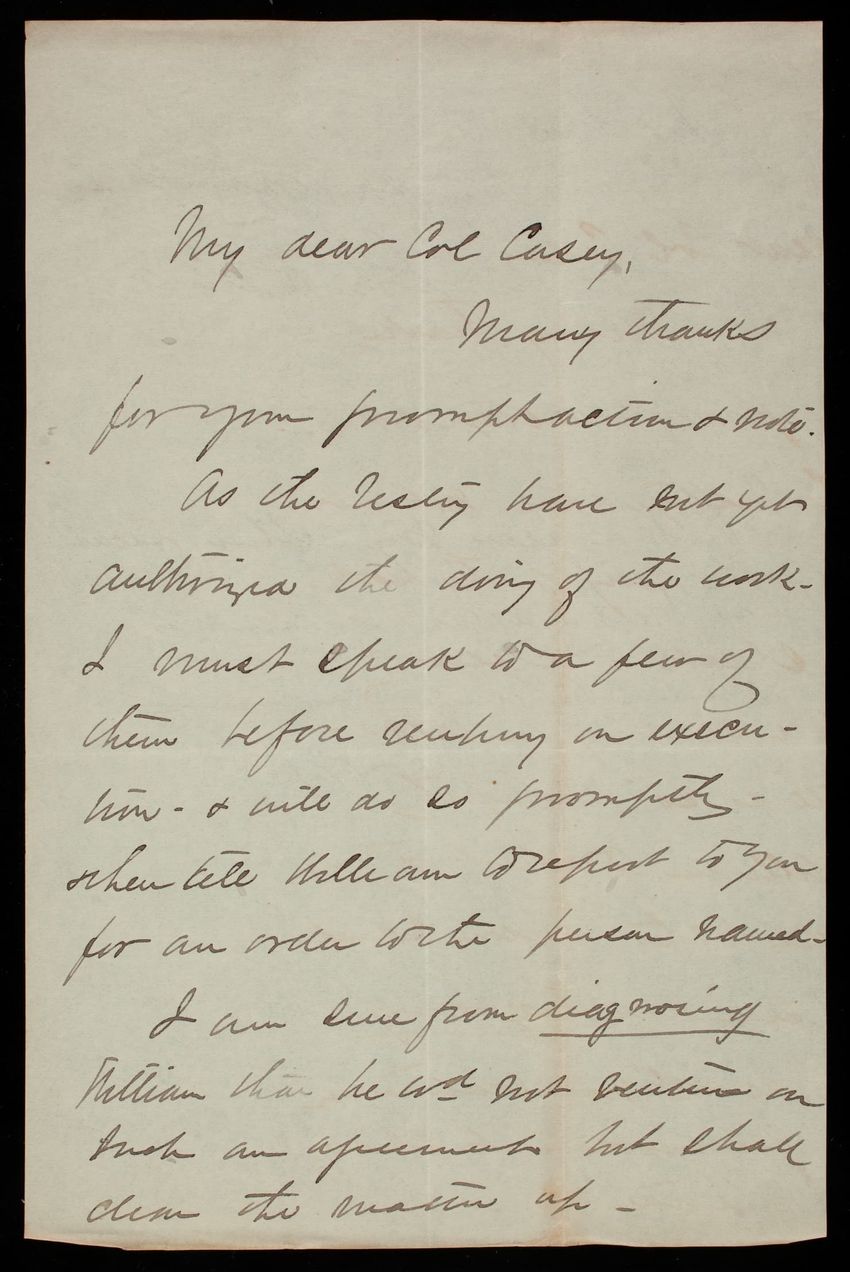 My dear Col Casey,
Many thanks
for your prompt action & note.
As the Vestry have not yet
authorized the doing of the work -
I must speak to a few of
them before venturing on execu-
tion - & will do so promptly -
then tell William to report to you
for an order to the person named -
I am sure from diagnosing
William that he wod not venture on
such an agreement but shall
clear the matter up -